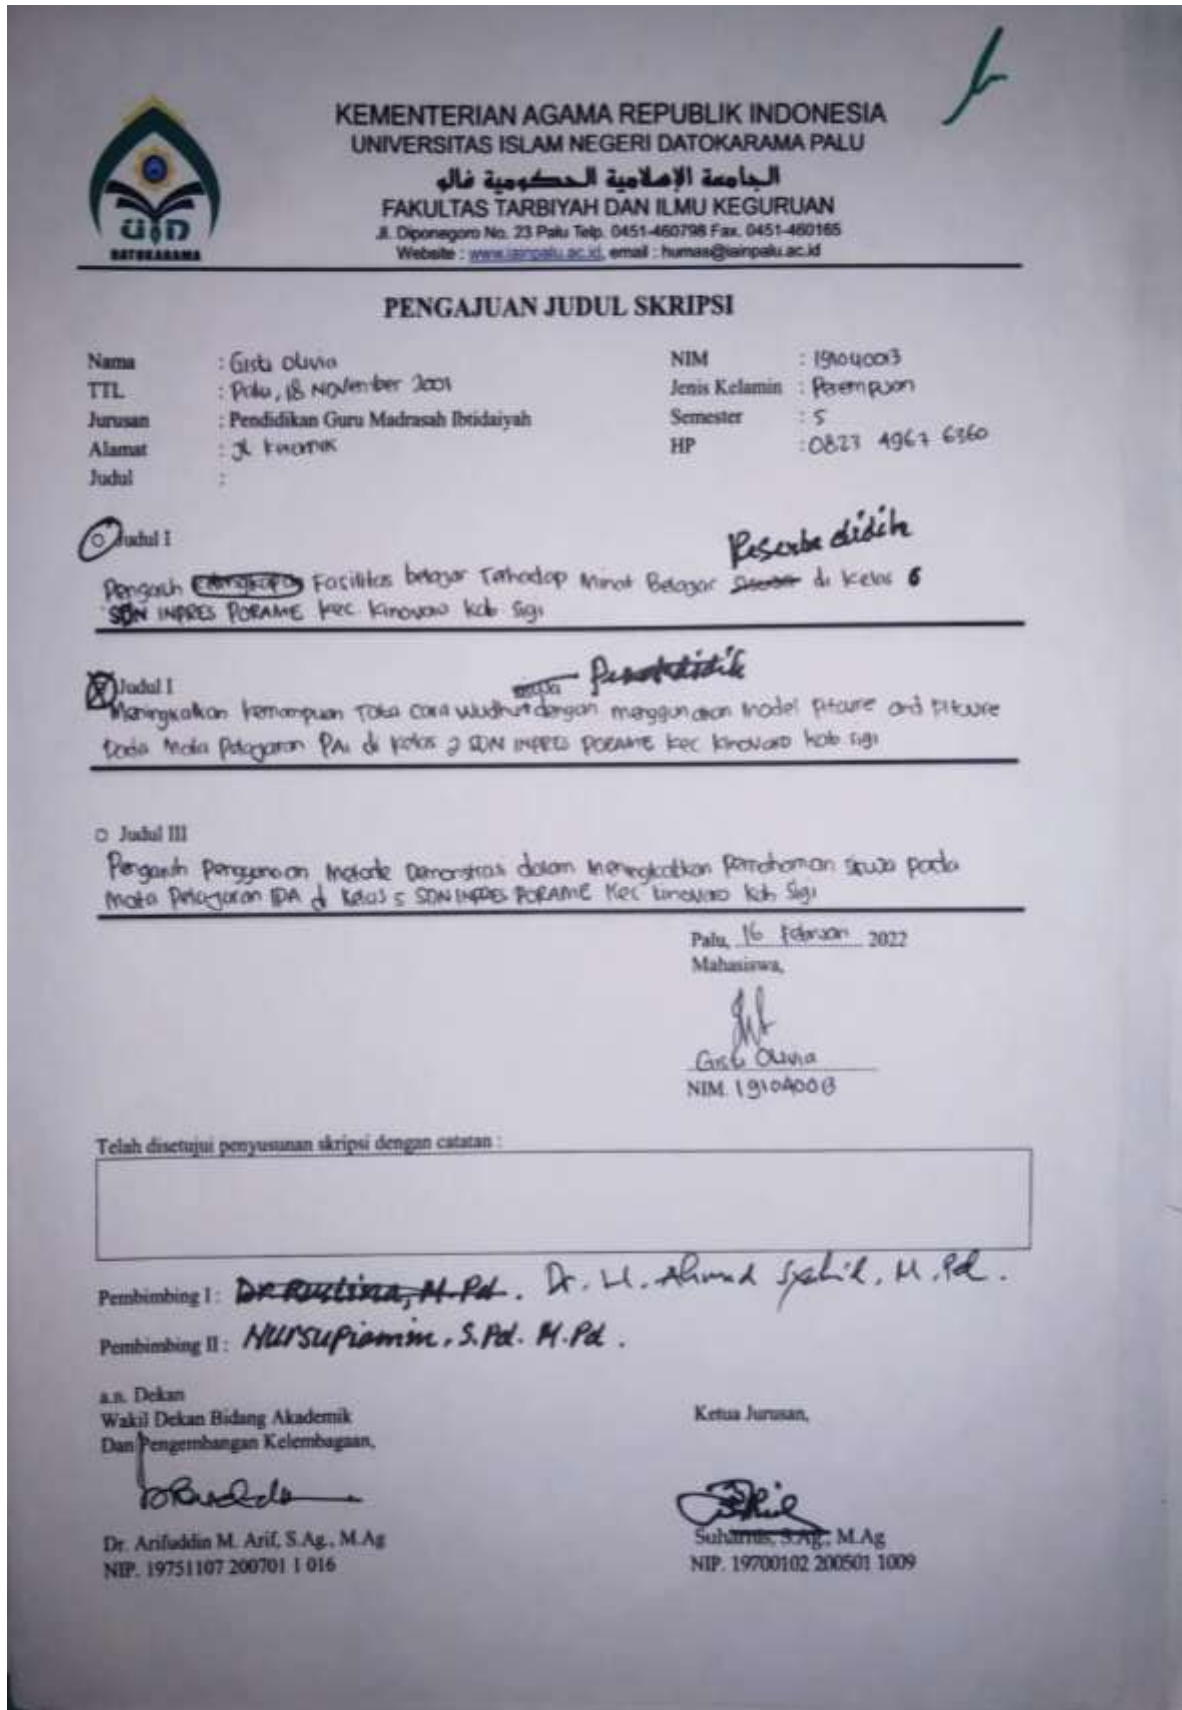 KEMENTERIAN AGAMA REPUBLIK INDONESIA
UNIVERSITAS ISLAM NEGERI DATOKARAMA PALU
الجامعة الإسلامية الحكومية فالو
FAKULTAS TARBIYAH DAN ILMU KEGURUAN
Jl. Diponegoro No. 23 Palu Telp. 0451-460798 Fax. 0451-460165
Website : www.iainpalu.ac.id, email : humas@iainpalu.ac.id
UIN
DATOKARAMA
PENGAJUAN JUDUL SKRIPSI
Nama : Gista Olivia NIM :
TTL : Palu, 18 November 2001 Jenis Kelamin : Perempuan
Jurusan : Pendidikan Guru Madrasah Ibtidaiyah Semester : 5
Alamat : Jl HP : 0823 4967 6360
Judul :
Judul I
Peserta didik
Pengaruh Fasilitas belajar Terhadap Minat Belajar di Kelas 6
SDN INPRES PORAME Kec Kinovaro Kab Sigi
Judul I
Meningkatkan kemampuan Tata cara wudhu dengan menggunakan model pitcure and pitcure
pada Mata Pelajaran PAI di Kelas 2 SDN INPRES PORAME Kec Kinovaro Kab Sigi
Judul III
Pengaruh Penggunaan Metode Demonstrasi dalam Meningkatkan Pemahaman siswa pada
Mata Pelajaran IPA di Kelas 5 SDN INPRES PORAME Kec Kinovaro Kab Sigi
Palu, 16 Februari 2022
Mahasiswa,
Gista Olivia
NIM.
Telah disetujui penyusunan skripsi dengan catatan :
Pembimbing I : Dr. Rustina, M.Pd. Dr. H. Ahmad Syahid, M.Pd.
Pembimbing II : Nursupiamin, S.Pd. M.Pd.
a.n. Dekan
Wakil Dekan Bidang Akademik Ketua Jurusan,
Dan Pengembangan Kelembagaan,
Dr. Arifuddin M. Arif, S.Ag., M.Ag Suharnis, S.Ag., M.Ag
NIP. 19751107 200701 1 016 NIP. 19700102 200501 1009